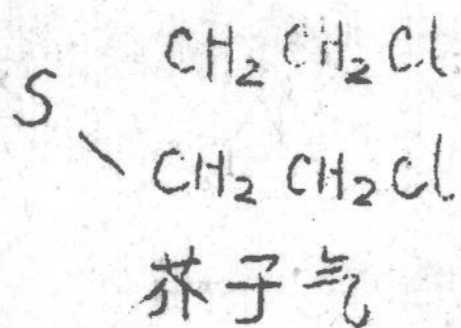 CH₂CH₂Cl
S
CH₂CH₂Cl
芥子气